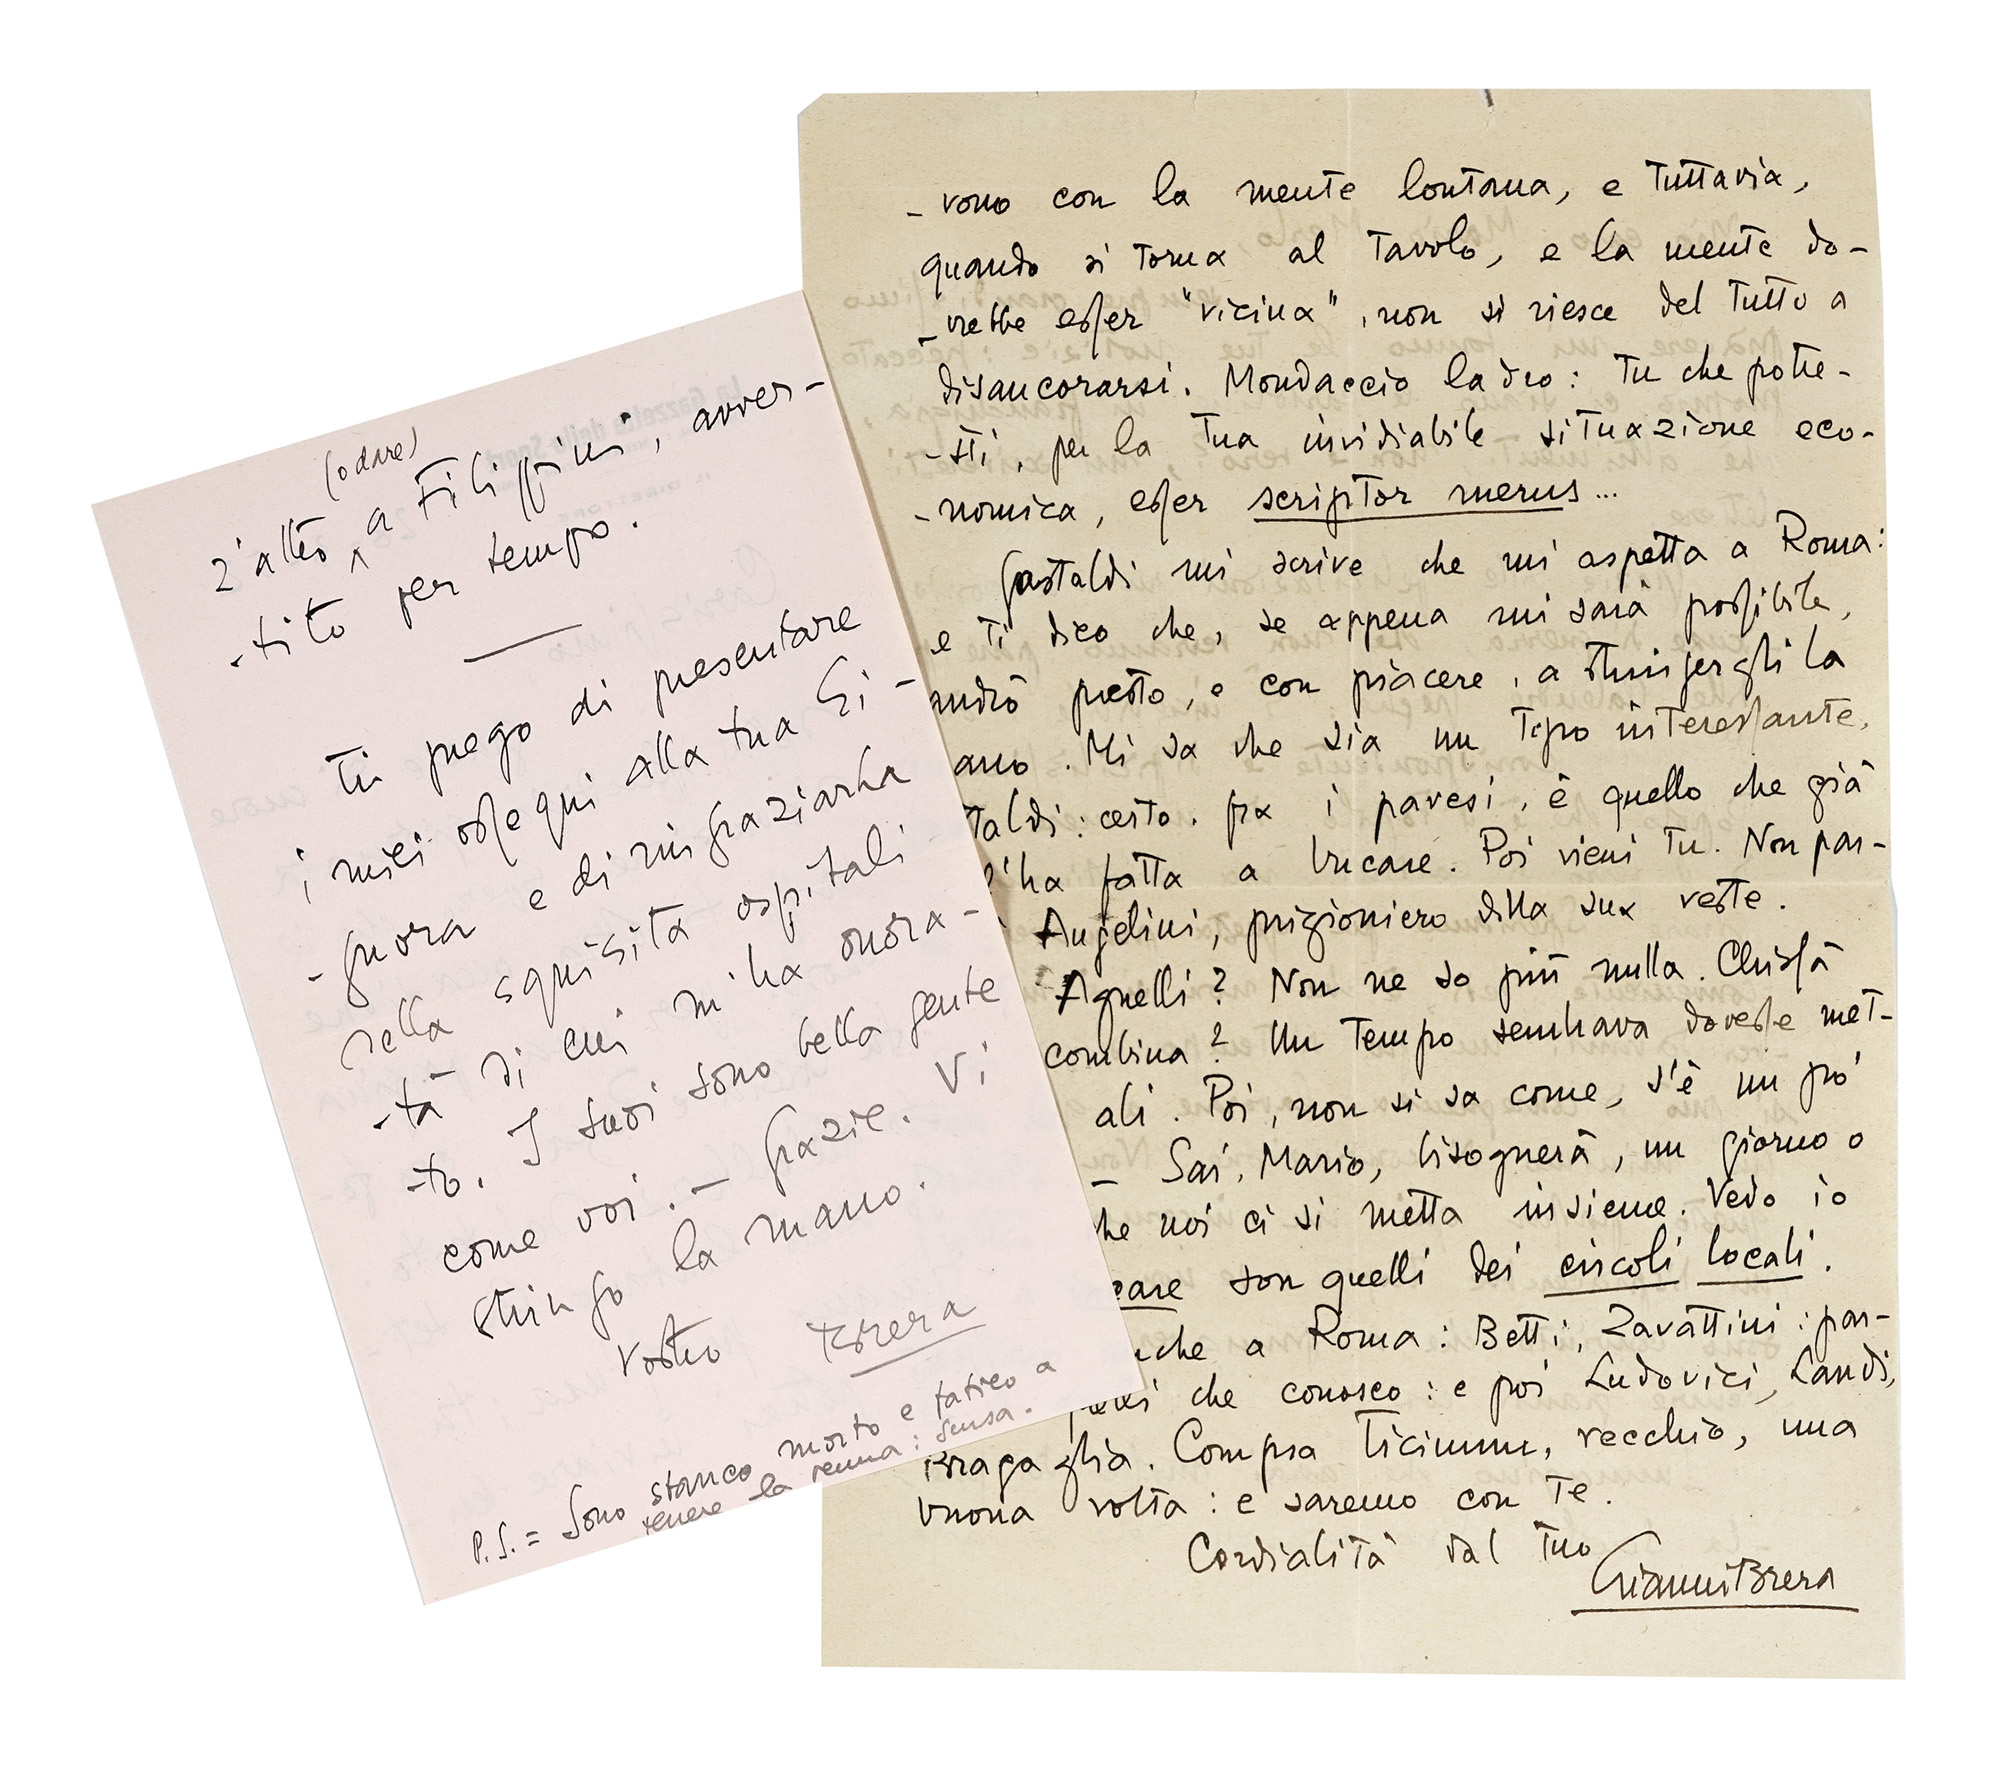 (o dare)
l'altro a Filippini, avver-
-tito per tempo.
Ti prego di presentare
i miei ossequi alla tua Si-
-gnora e di ringraziarla
della squisita ospitali-
-tà di cui m'ha onora-
-to. I tuoi sono bella gente
come voi. - Grazie. Vi
stringo la mano.
Vostro Brera
P.S. = Sono stanco morto e fatico a
tenere la penna: scusa.
- vono con la mente lontana, e tuttavia,
quando si torna al tavolo, e la mente do-
-vrebbe esser "vicina", non si riesce del tutto a
disancorarsi. Mondaccio ladro: tu che potre-
-sti, per la tua invidiabile situazione eco-
-nomica, esser scriptor merus...
Gastaldi mi scrive che mi aspetta a Roma:
e ti dico che, se appena mi sarà possibile,
andrò presto, e con piacere, a stringergli la
mano. Mi sa che sia un tipo interessante,
taldi: certo, fra i pavesi, è quello che già
l'ha fatta a bucare. Poi vieni tu. Non par-
Angelini, prigioniero della sua veste.
Agnelli? Non ne so più nulla. Chissà
combina? Un tempo sembrava dovesse met-
ali. Poi, non si sa come, s'è un po'
- Sai, Mario, bisognerà, un giorno o
che noi ci si metta insieme. Vedo io
care son quelli dei circoli locali.
che a Roma: Betti, Zavattini: par-
che conosco: e poi Ludovici, Landi,
Bragaglia. Compra Ticinum, vecchio, una
buona volta: e saremo con te.
Cordialità dal tuo
Gianni Brera